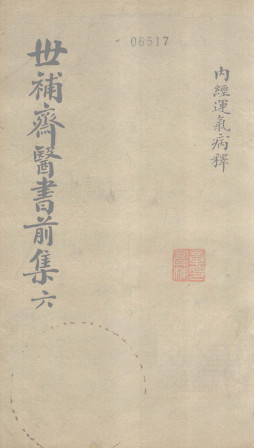 06517
內經運氣病釋
世補齋醫書前集 六